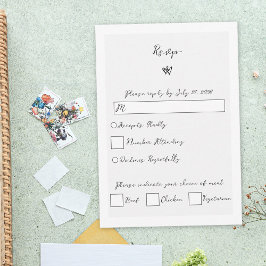 Rsvp
Please reply by July 27, 2028
M
Accepts Gladly
Number Attending
Declines Regretfully
Please indicate your choice of meal
Beef Chicken Vegetarian